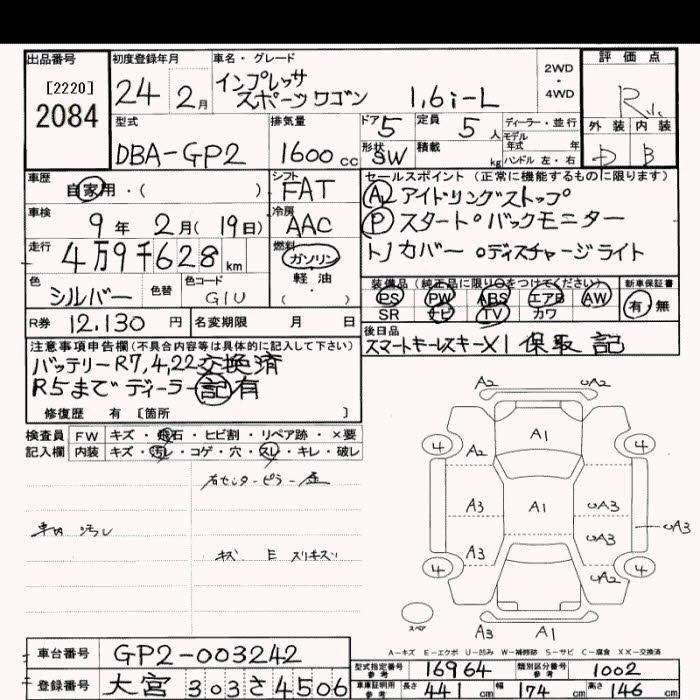 出品番号 初度登録年月 車名・グレード 評価点
[2220]
2084
24 2月 インプレッサ
スポーツワゴン 1.6i-L 2WD・4WD R
型式 排気量 ドア 5 定員 5人 ディーラー・並行 外装 内装
DBA-GP2 1600cc 形状 SW 積載 kg モデル年式 年 ハンドル 左・右 D B
車歴 シフト セールスポイント (正常に機能するものに限ります)
自家用・( ) FAT Aアイドリングストップ
車検 冷房
9年 2月(19日) AAC Pスタート○バックモニター
走行 燃料
4万9千628km ガソリン トノカバー ○ディスチャージライト
色 色替 色コード 軽油・
シルバー G1U ( )
装備品 (純正品に限り○をつけてください) 新車保証書
PS PW ABS エアB AW 有 無
SR ナビ TV カワ
R券 12,130円 名変期限 月 日
後日品
スマートキーレスキーX1 保取 記
注意事項申告欄(不具合内容等は具体的に記入して下さい)
バッテリーR7,4,22交換済
R5までディーラー記有
修復歴 有 [箇所 ]
検査員 FW キズ・飛石・ヒビ割・リペア跡・×要
記入欄 内装 キズ・汚レ・コゲ・穴・スレ・キレ・破レ
右センターピラー
車内 汚レ
キズ E スリキズ
A2 ωA2
4 A2 A1 4
A3 A1 ωA3
ωA3
A3 ωA3
4 ωA2 4
スペア
A3 A1
A-キズ E-エクボ U-凹み W-補修跡 S-サビ C-腐食 XX-交換済
車台番号 GP2-003242
型式指定番号 参考 16964 類別区分番号 参考 1002
登録番号 大宮 303 さ 4506
車庫証明用 参考 長さ 441cm 幅 174cm 高さ 146cm